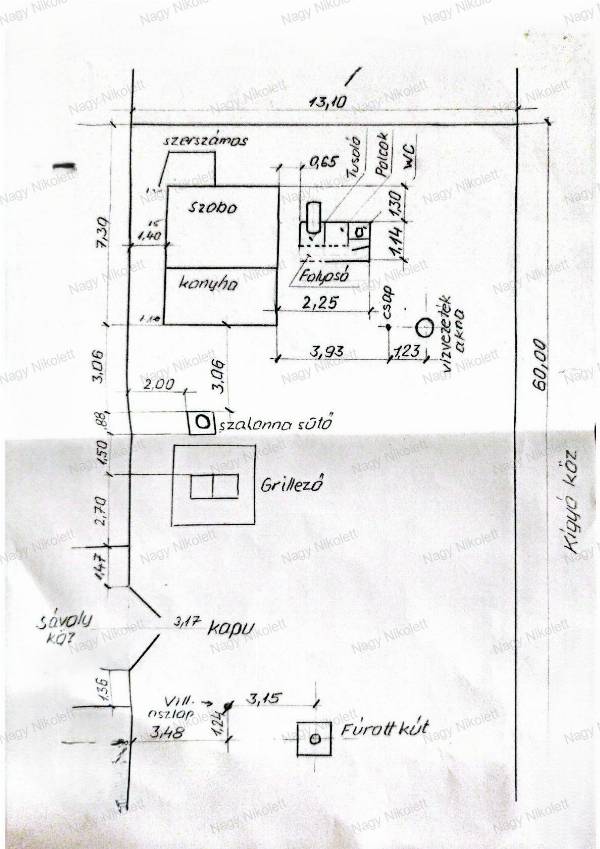 13,10
szerszámos
0,65
Tusoló
Polcok
WC
1,30
1,14
szoba
7,30
1,40
konyha
Folyosó
2,25
csap
vizvezeték
akna
3,93
1,23
60,00
3,06
3,06
2,00
,88
szalonna sütő
1,50
Grillező
2,70
Kigyó köz
1,47
Sávoly
köz
3,17 kapu
1,36
Vill.
oszlop
3,15
1,24
3,48
Fúrott kút
Nagy Nikolett